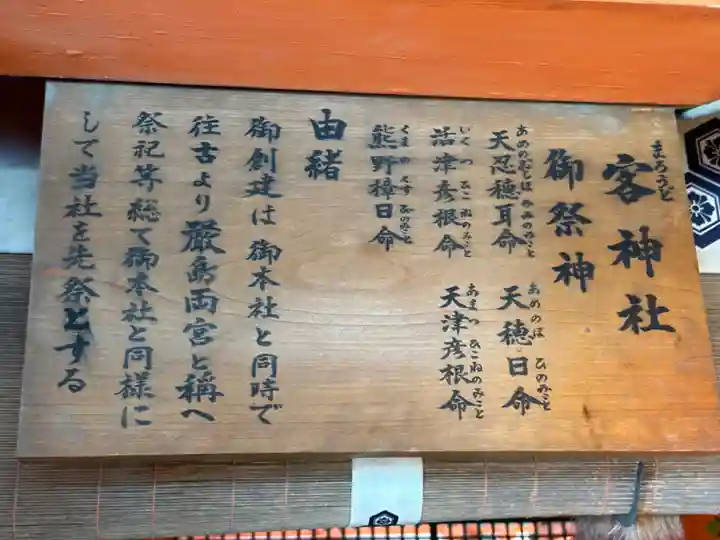 客神社
まろうど
御祭神
天忍穂耳命
あめのおしほみみのみこと
天穂日命
あめのほひのみこと
活津彦根命
いくつひこねのみこと
天津彦根命
あまつひこねのみこと
熊野樟日命
くまのくすひのみこと
由緒
御創建は御本社と同時で
往古より厳島両宮と称へ
祭祀等総て御本社と同様に
して当社を先祭とする